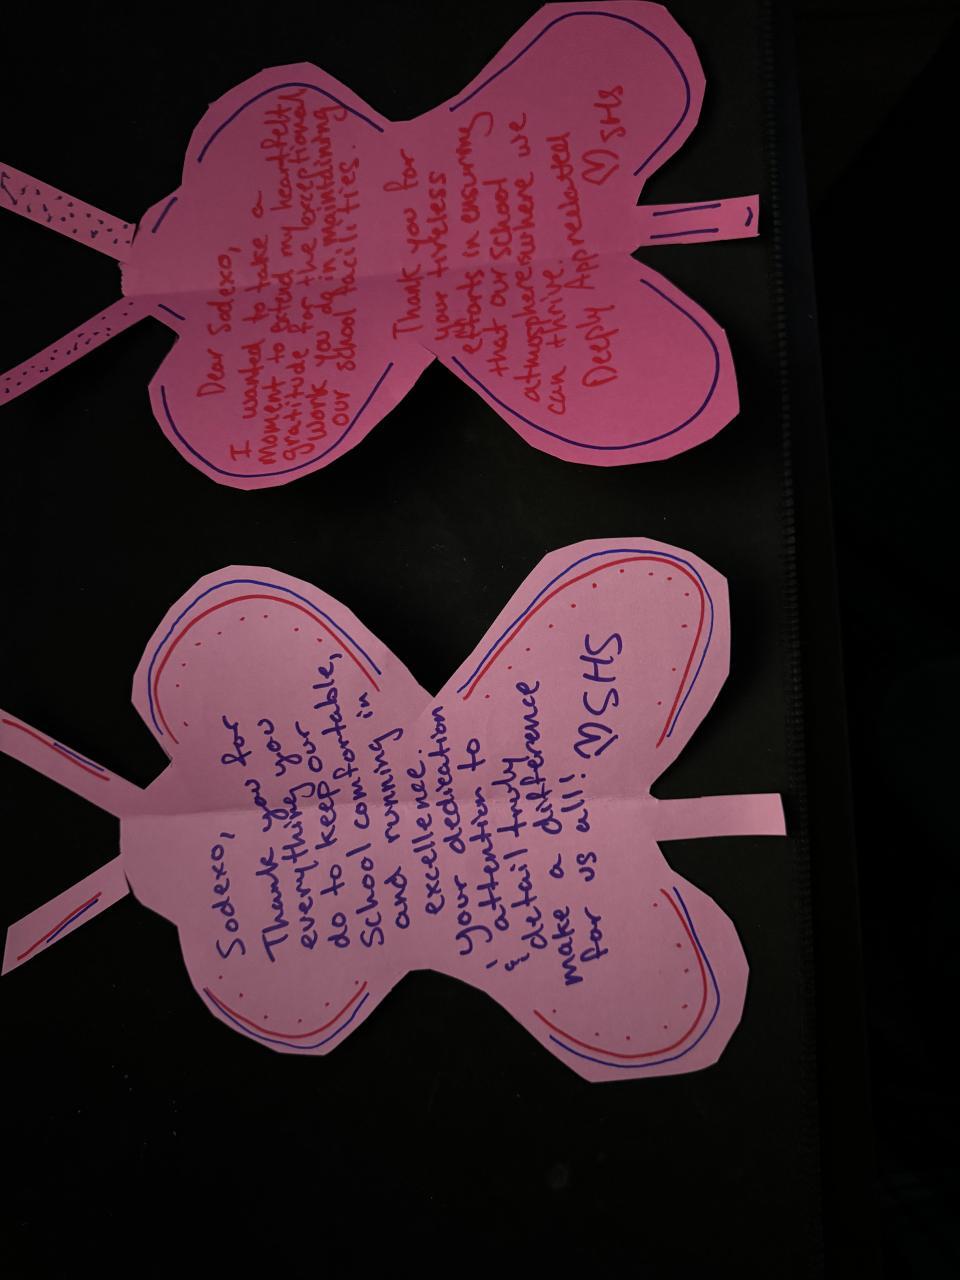 Dear Sodexo,
I wanted to take a
moment to extend my heartfelt
gratitude for the exceptional
work you do in maintaining
our school facilities.
Thank you for
your tireless
efforts in ensuring
that our school
atmosphere where we
can thrive.
Deeply Appreciated
♡ SHS
Sodexo,
Thank you for
everything you
do to keep our
School comfortable,
and running in
excellence.
your dedication
& attention to
detail truly
make a difference
for us all! ♡ SHS